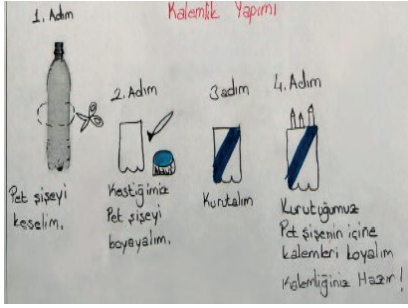 Kalemlik Yapımı
1. Adım
Pet şişeyi
keselim.
2. Adım
Kestiğimiz
Pet şişeyi
boyayalım.
3 adım
Kurutalım
4. Adım
Kuruttuğumuz
Pet şişenin içine
kalemleri koyalım
Kalemliğiniz Hazır!